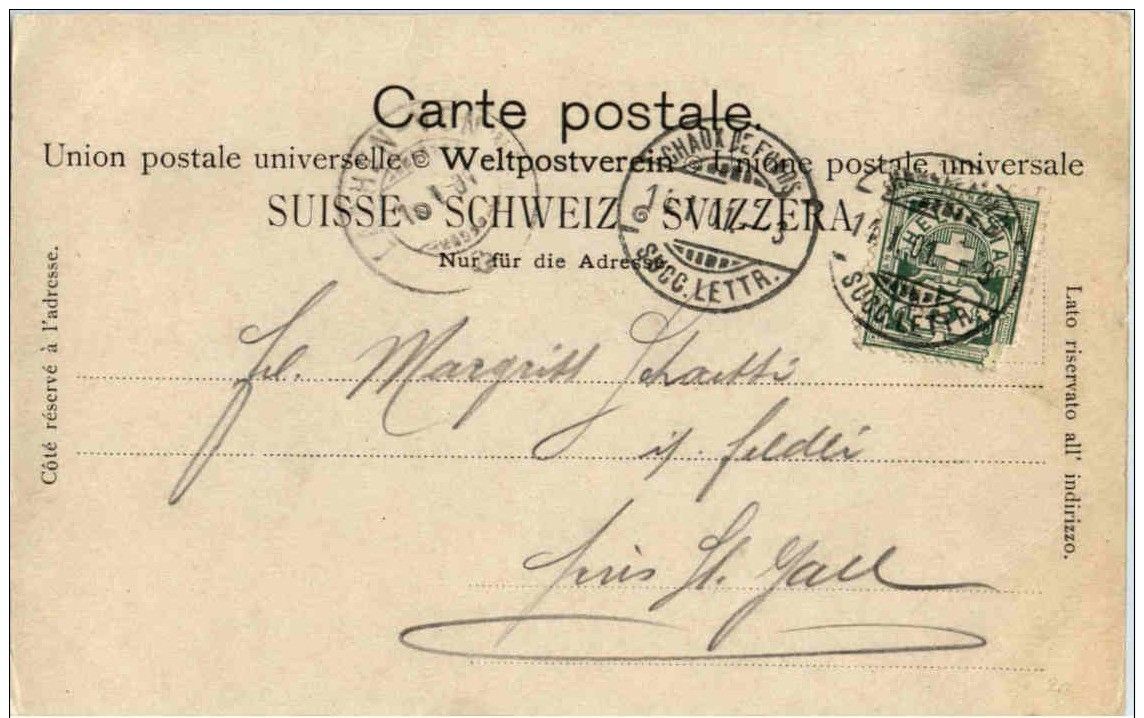 Carte postale.
Union postale universelle Weltpostverein Unione postale universale
SUISSE SCHWEIZ SVIZZERA
Nur für die Adresse
Côté réservé à l'adresse.
Lato riservato all' indirizzo.
CHAUX DE FONDS
SUCC. LETTR.
SUCC. LETTR.
HELVETIA
Frl. Margritt Schaetti
Feldli
près St. Gall